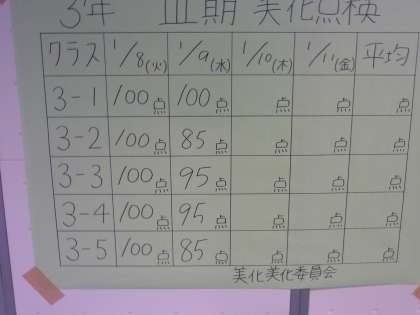 3年 Ⅲ期 美化点検
クラス 1/8(火) 1/9(水) 1/10(木) 1/11(金) 平均
3-1 100点 100点 点 点 点
3-2 100点 85点 点 点 点
3-3 100点 95点 点 点 点
3-4 100点 95点 点 点 点
3-5 100点 85点 点 点 点
美化美化委員会